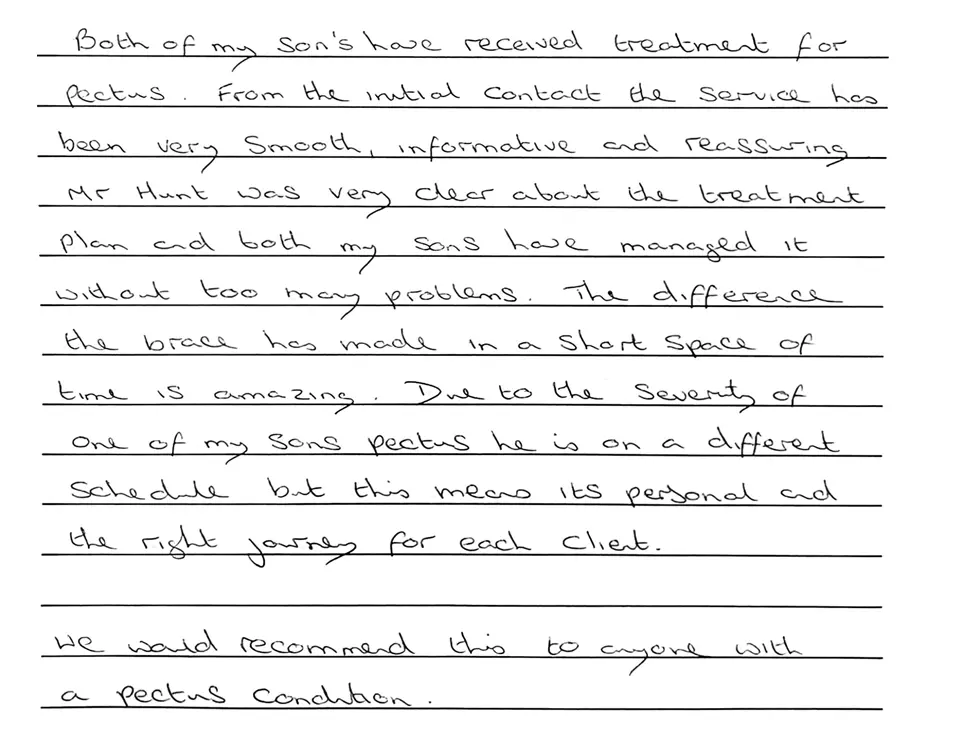 Both of my son's have received treatment for
pectus. From the initial contact the service has
been very smooth, informative and reassuring.
Mr Hunt was very clear about the treatment
plan and both my sons have managed it
without too many problems. The difference
the brace has made in a short space of
time is amazing. Due to the severity of
one of my sons pectus he is on a different
schedule but this means its personal and
the right journey for each client.
We would recommend this to anyone with
a pectus condition.